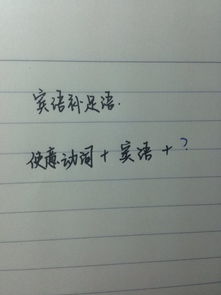 宾语补足语.
使意动词 + 宾语 + ?